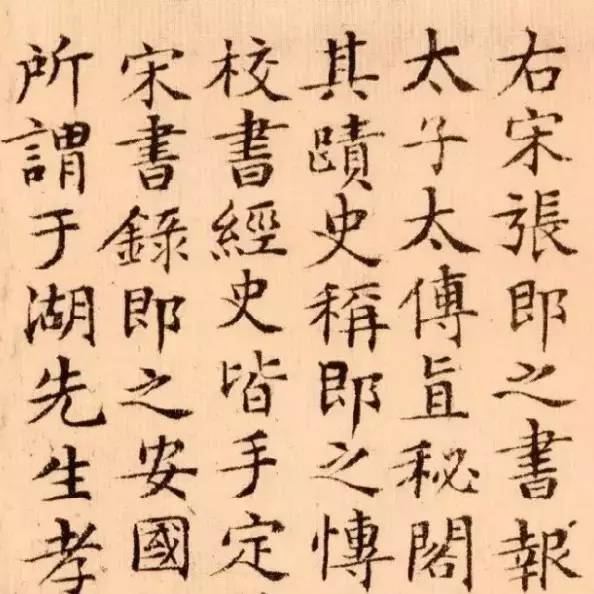 右宋張即之書報
太子太傅直秘閣
其蹟史稱即之愽
校書經史皆手定
宋書錄即之安國
所謂于湖先生孝